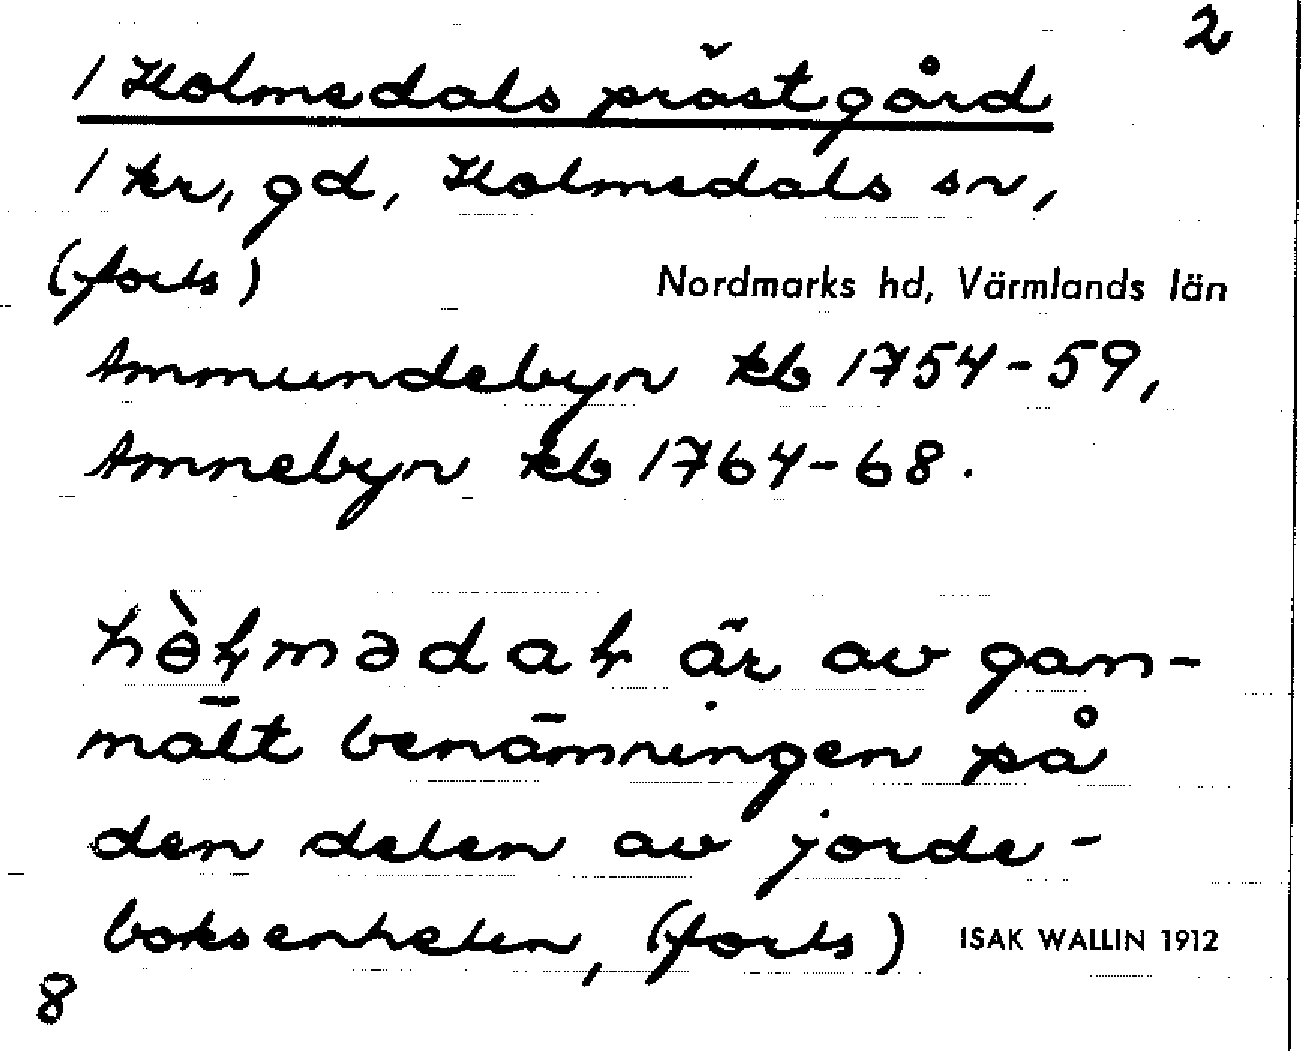 2
/ Holmedals prästgård
1 kr, gd, Holmedals sn,
(forts)
Nordmarks hd, Värmlands län
Ammundebyn kb 1754-59,
Amnebyn kb 1764-68.
är av gam-
malt benämningen på
den delen av jorde-
boksenheten, (forts)
ISAK WALLIN 1912
8